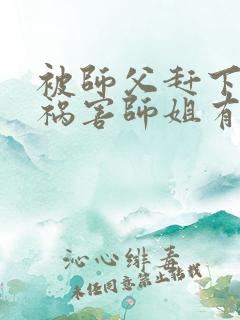 被師父赶下
祸害師姐有
沁心緋春
未任同意禁止转载